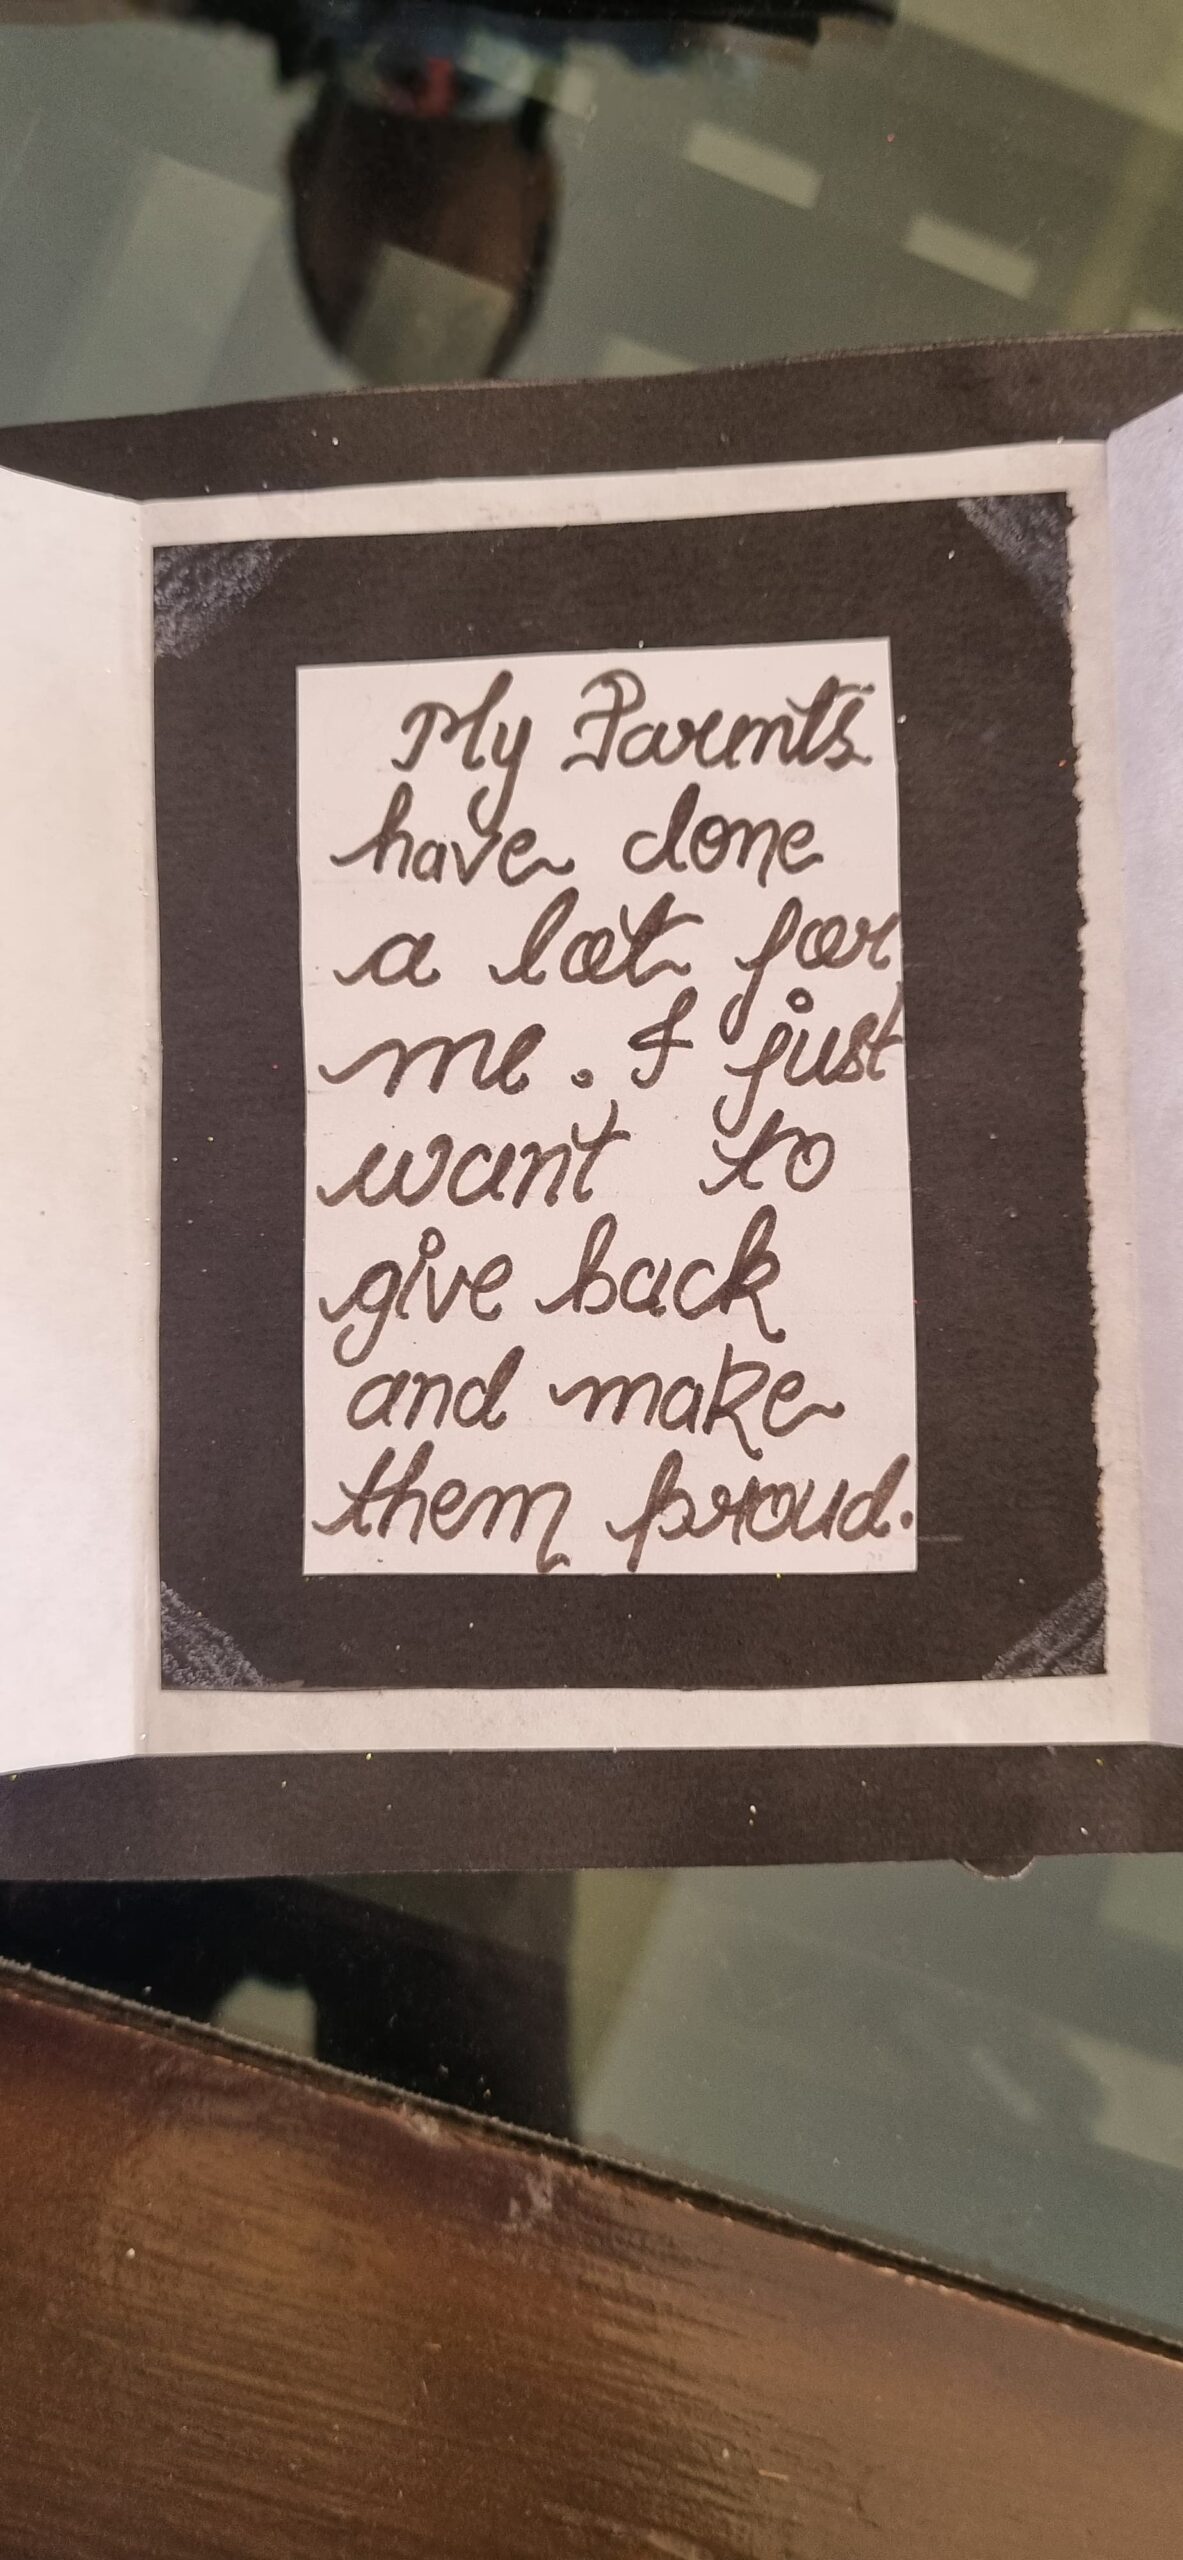 My Parents
have done
a lot for
me. I just
want to
give back
and make
them proud.